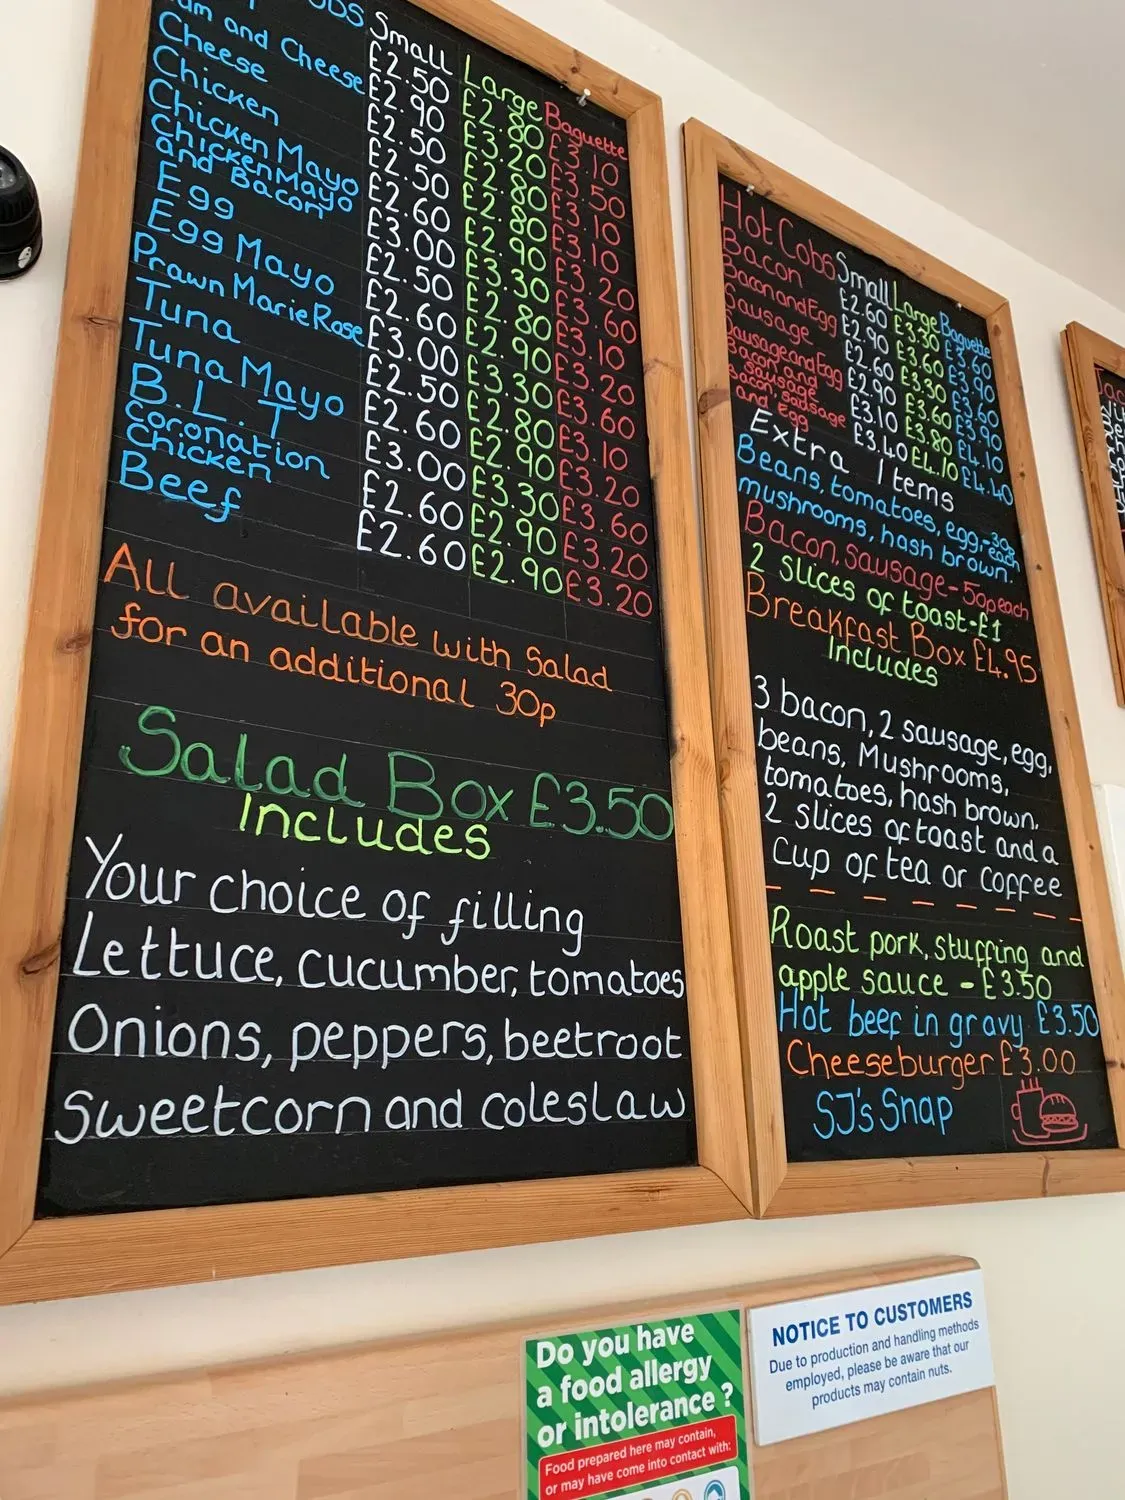 Small Large Baguette
£2.50 £2.80 £3.10
and Cheese £2.90 £3.20 £3.50
Cheese £2.50 £2.80 £3.10
Chicken £2.50 £2.80 £3.10
Chicken Mayo £2.60 £2.90 £3.20
Chicken Mayo
and Bacon £3.00 £3.30 £3.60
Egg £2.50 £2.80 £3.10
Egg Mayo £2.60 £2.90 £3.20
Prawn Marie Rose £3.00 £3.30 £3.60
Tuna £2.50 £2.80 £3.10
Tuna Mayo £2.60 £2.90 £3.20
B.L.T £3.00 £3.30 £3.60
Coronation
Chicken £2.60 £2.90 £3.20
Beef £2.60 £2.90 £3.20
All available with Salad
for an additional 30p
Salad Box £3.50
Includes
Your choice of filling
Lettuce, cucumber, tomatoes
Onions, peppers, beetroot
Sweetcorn and coleslaw
Hot Cobs Small Large Baguette
Bacon £2.60 £3.30 £3.60
Bacon and Egg £2.90 £3.60 £3.90
Sausage £2.60 £3.30 £3.60
Sausage and Egg £2.90 £3.60 £3.90
Bacon and
sausage £3.10 £3.80 £4.10
Bacon, sausage
and egg £3.40 £4.10 £4.40
Extra Items
Beans, tomatoes, egg, -30p
mushrooms, hash brown. each
Bacon, sausage - 50p each
2 slices of toast - £1
Breakfast Box £4.95
Includes
3 bacon, 2 sausage, egg,
beans, Mushrooms,
tomatoes, hash brown.
2 slices of toast and a
cup of tea or coffee
Roast pork, stuffing and
apple sauce - £3.50
Hot beef in gravy £3.50
Cheeseburger £3.00
SJ's Snap
Do you have
a food allergy
or intolerance?
Food prepared here may contain,
or may have come into contact with:
NOTICE TO CUSTOMERS
Due to production and handling methods
employed, please be aware that our
products may contain nuts.